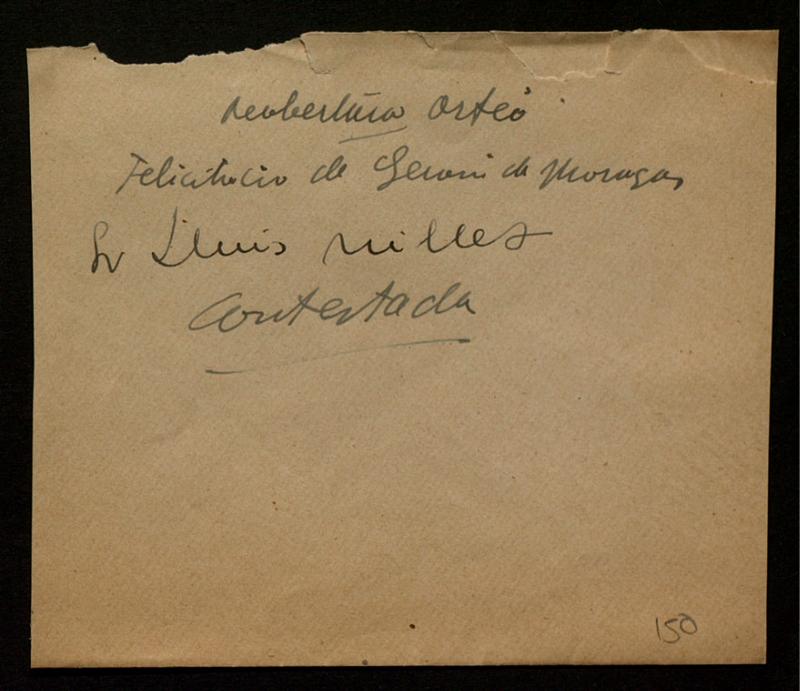 Reobertura Orfeó
Felicitacio de Geroni de Moragas
Sr Lluis Millet
Contestada
150